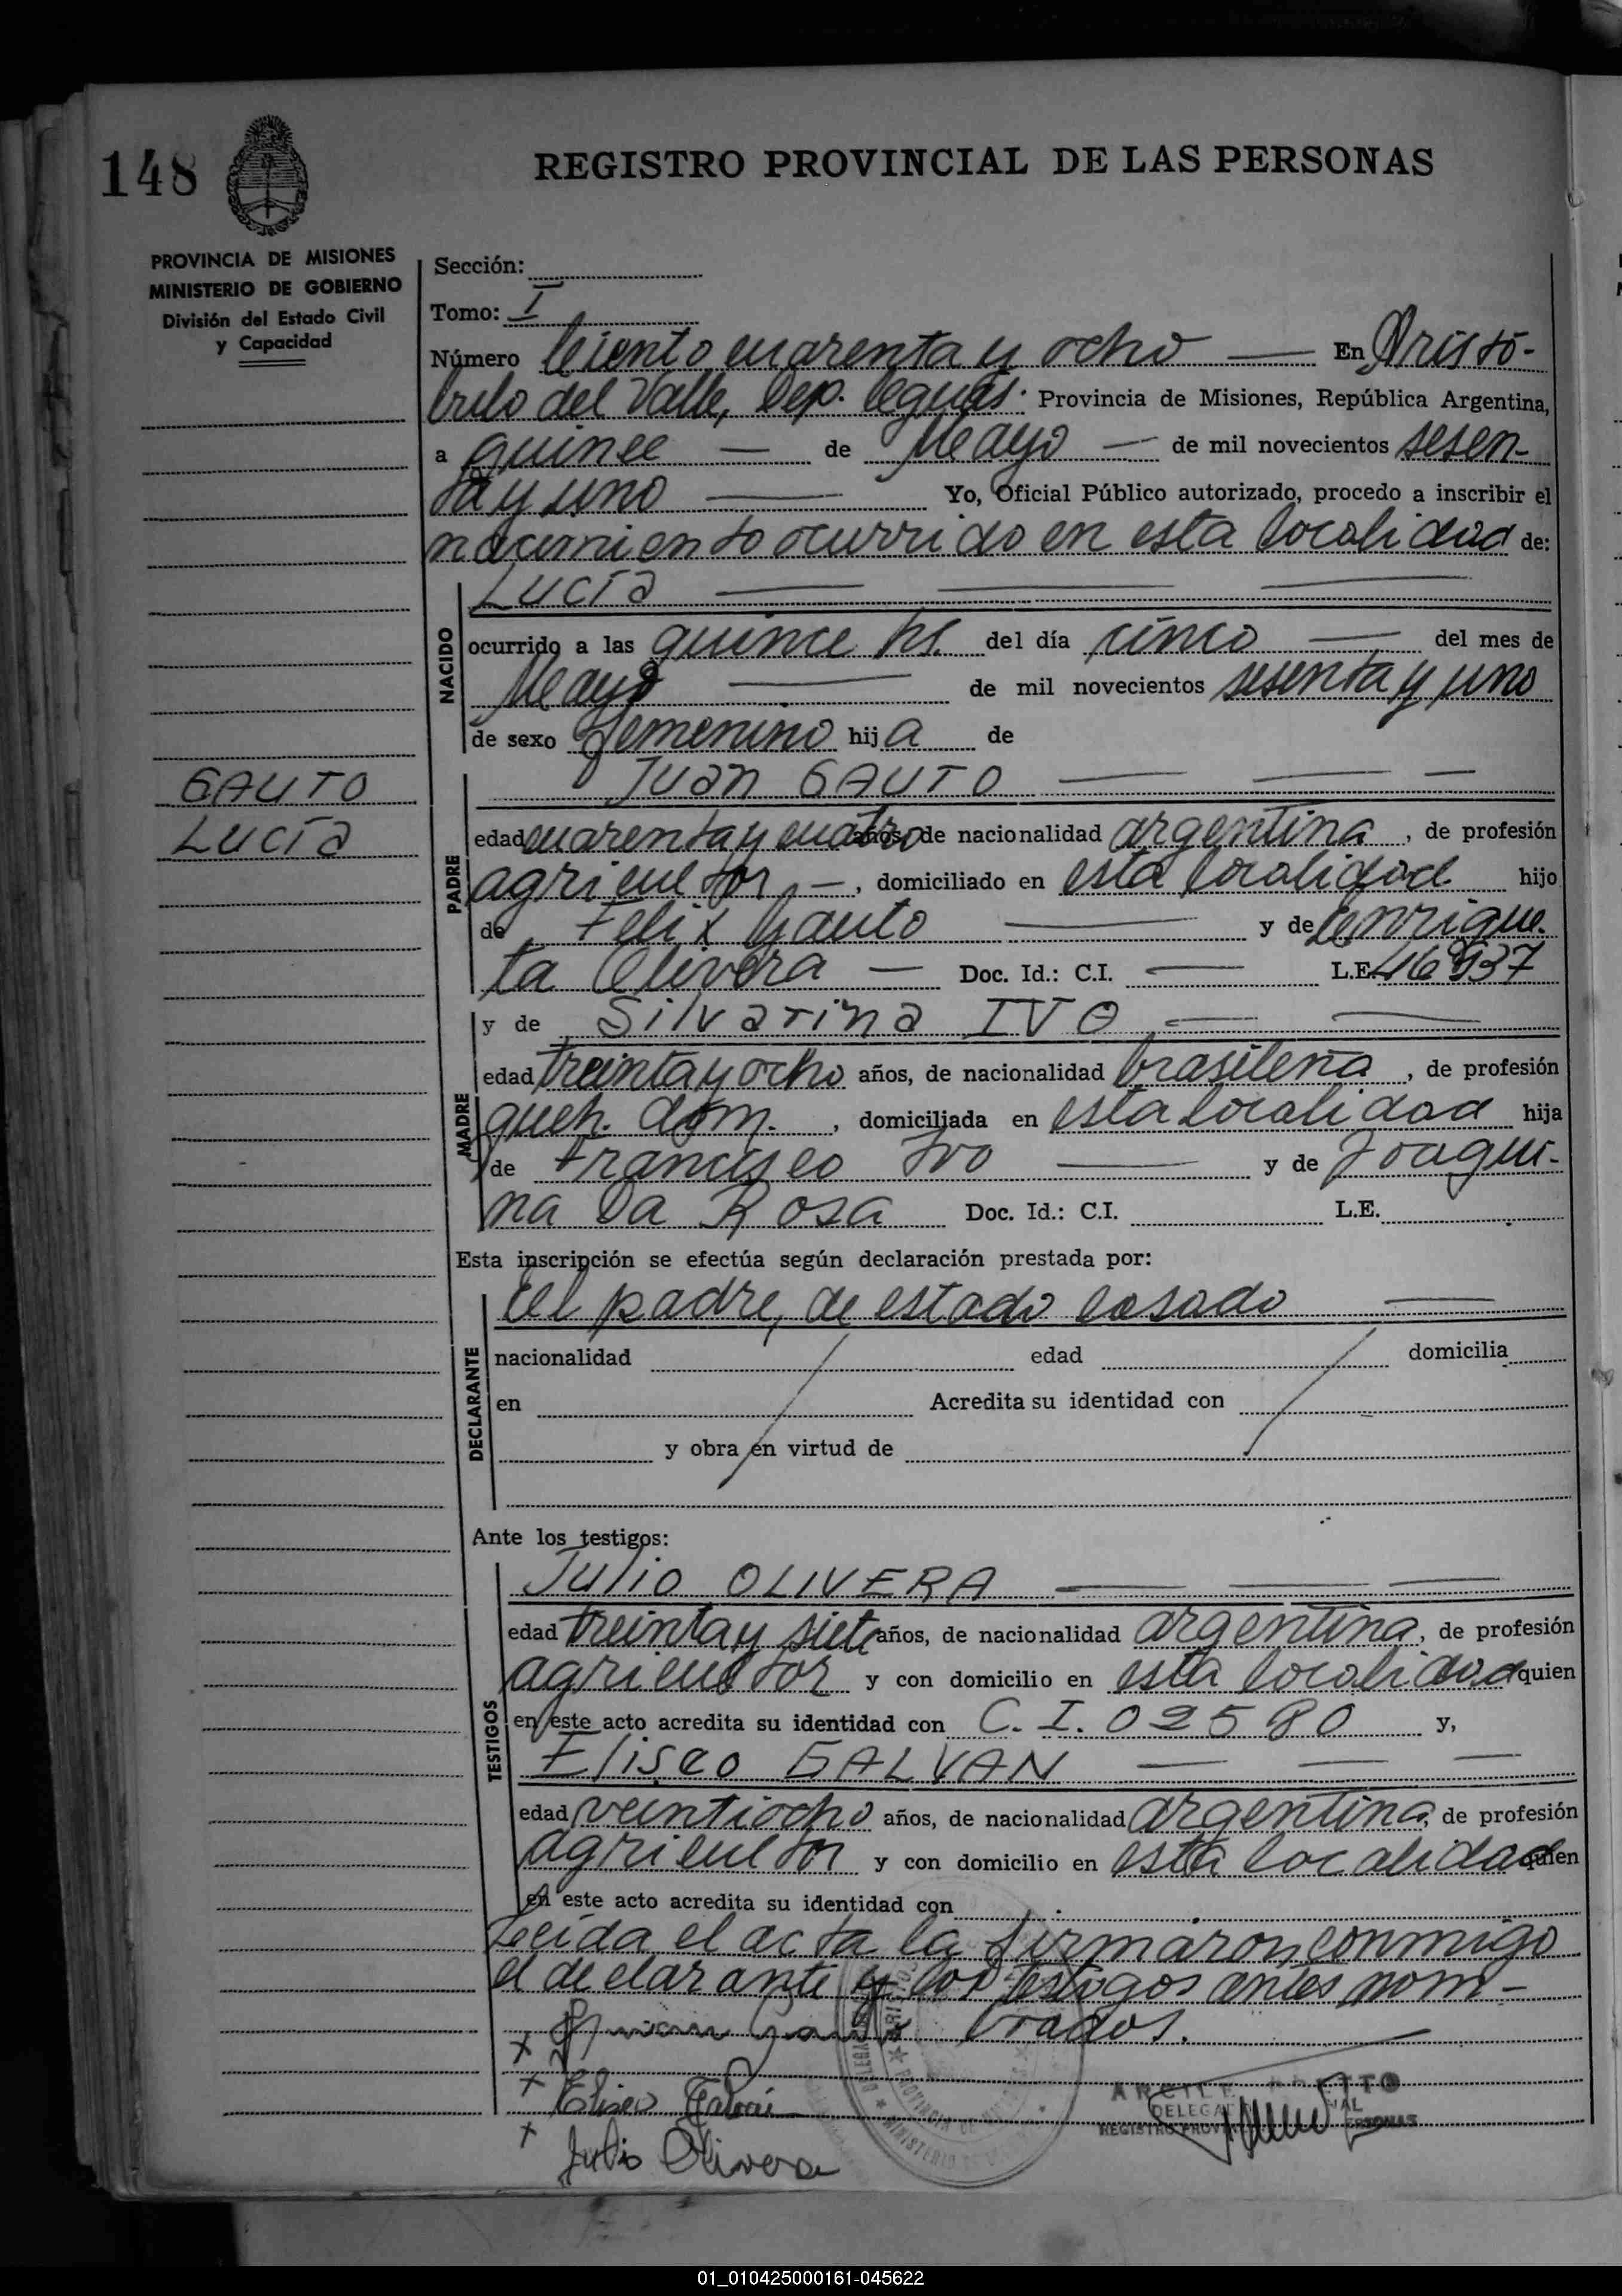 148
REGISTRO PROVINCIAL DE LAS PERSONAS
PROVINCIA DE MISIONES
MINISTERIO DE GOBIERNO
División del Estado Civil
y Capacidad
Sección:
Tomo: I
Número Ciento cuarenta y ocho — En Aristó-
bulo del Valle, Dep. Caguás. Provincia de Misiones, República Argentina,
a quince — de Mayo — de mil novecientos sesen-
ta y uno — Yo, Oficial Público autorizado, procedo a inscribir el
nacimiento ocurrido en esta localidad de:
NACIDO
Lucía — — —
ocurrido a las quince hs. del día cinco — del mes de
Mayo — de mil novecientos sesenta y uno
de sexo femenino hij a de
GAUTO
Lucía
PADRE
Juan GAUTO — — —
edad cuarenta y cuatro años, de nacionalidad argentina, de profesión
agricultor, —, domiciliado en esta localidad hijo
de Felix Gauto — y de Enrique-
ta Olivera — Doc. Id.: C.I. — L.E.
MADRE
y de Silvarina IVO — —
edad treinta y ocho años, de nacionalidad brasileña, de profesión
queh. dom. , domiciliada en esta localidad hija
de Francisco Ivo — y de Joaqui-
na Da Rosa Doc. Id.: C.I. L.E.
Esta inscripción se efectúa según declaración prestada por:
DECLARANTE
El padre, de estado casado —
nacionalidad edad domicilia
en Acredita su identidad con
y obra en virtud de
Ante los testigos:
TESTIGOS
Julio OLIVERA — — —
edad treinta y siete años, de nacionalidad argentina, de profesión
agricultor y con domicilio en esta localidad quien
en este acto acredita su identidad con C. I. 02580 y,
Eliseo GALVAN — — —
edad veintiocho años, de nacionalidad argentina, de profesión
agricultor y con domicilio en esta localidad quien
en este acto acredita su identidad con
Leída el acta la firmaron conmigo
el declarante y los testigos antes nom-
brados. —
x Juan Gauto
x Eliseo Galvan
x Julio Olivera
DELEGA
REGISTRO PROVIN
PROVINCIA DE
MINISTERIO
01_010425000161-045622